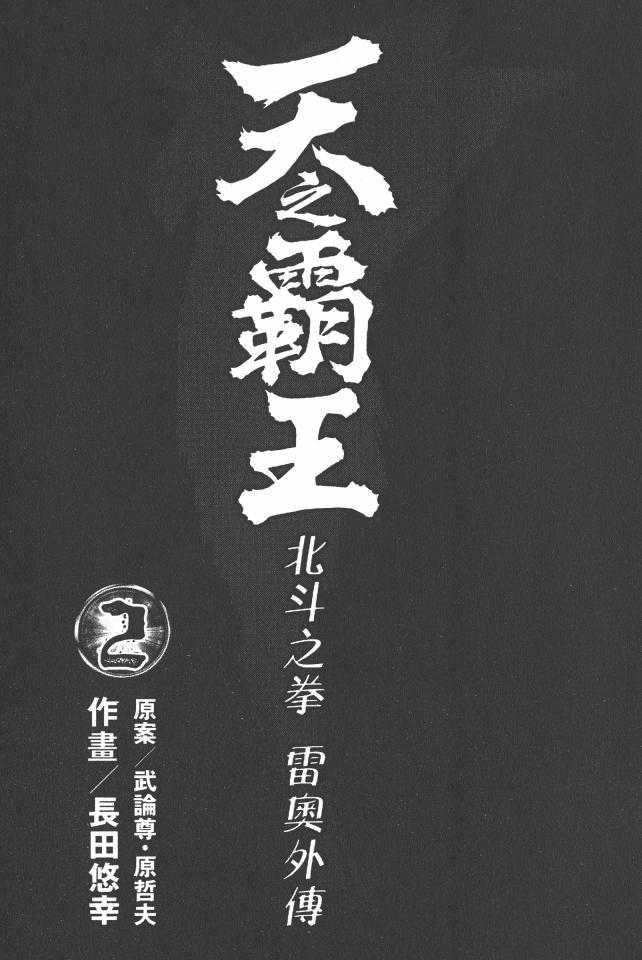 天之霸王
北斗之拳 雷奧外傳
2
原案／武論尊・原哲夫
作畫／長田悠幸